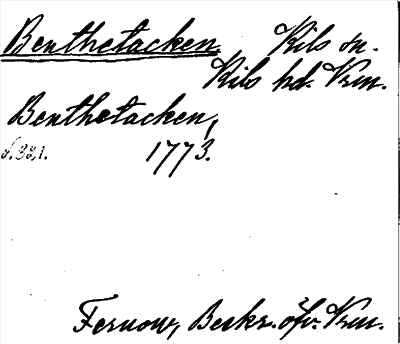 Benthetacken Kils sn.
Kils hd. Vrm.
Benthetacken,
s. 321. 1773.
Fernow, Beskr. öfv. Vrm.